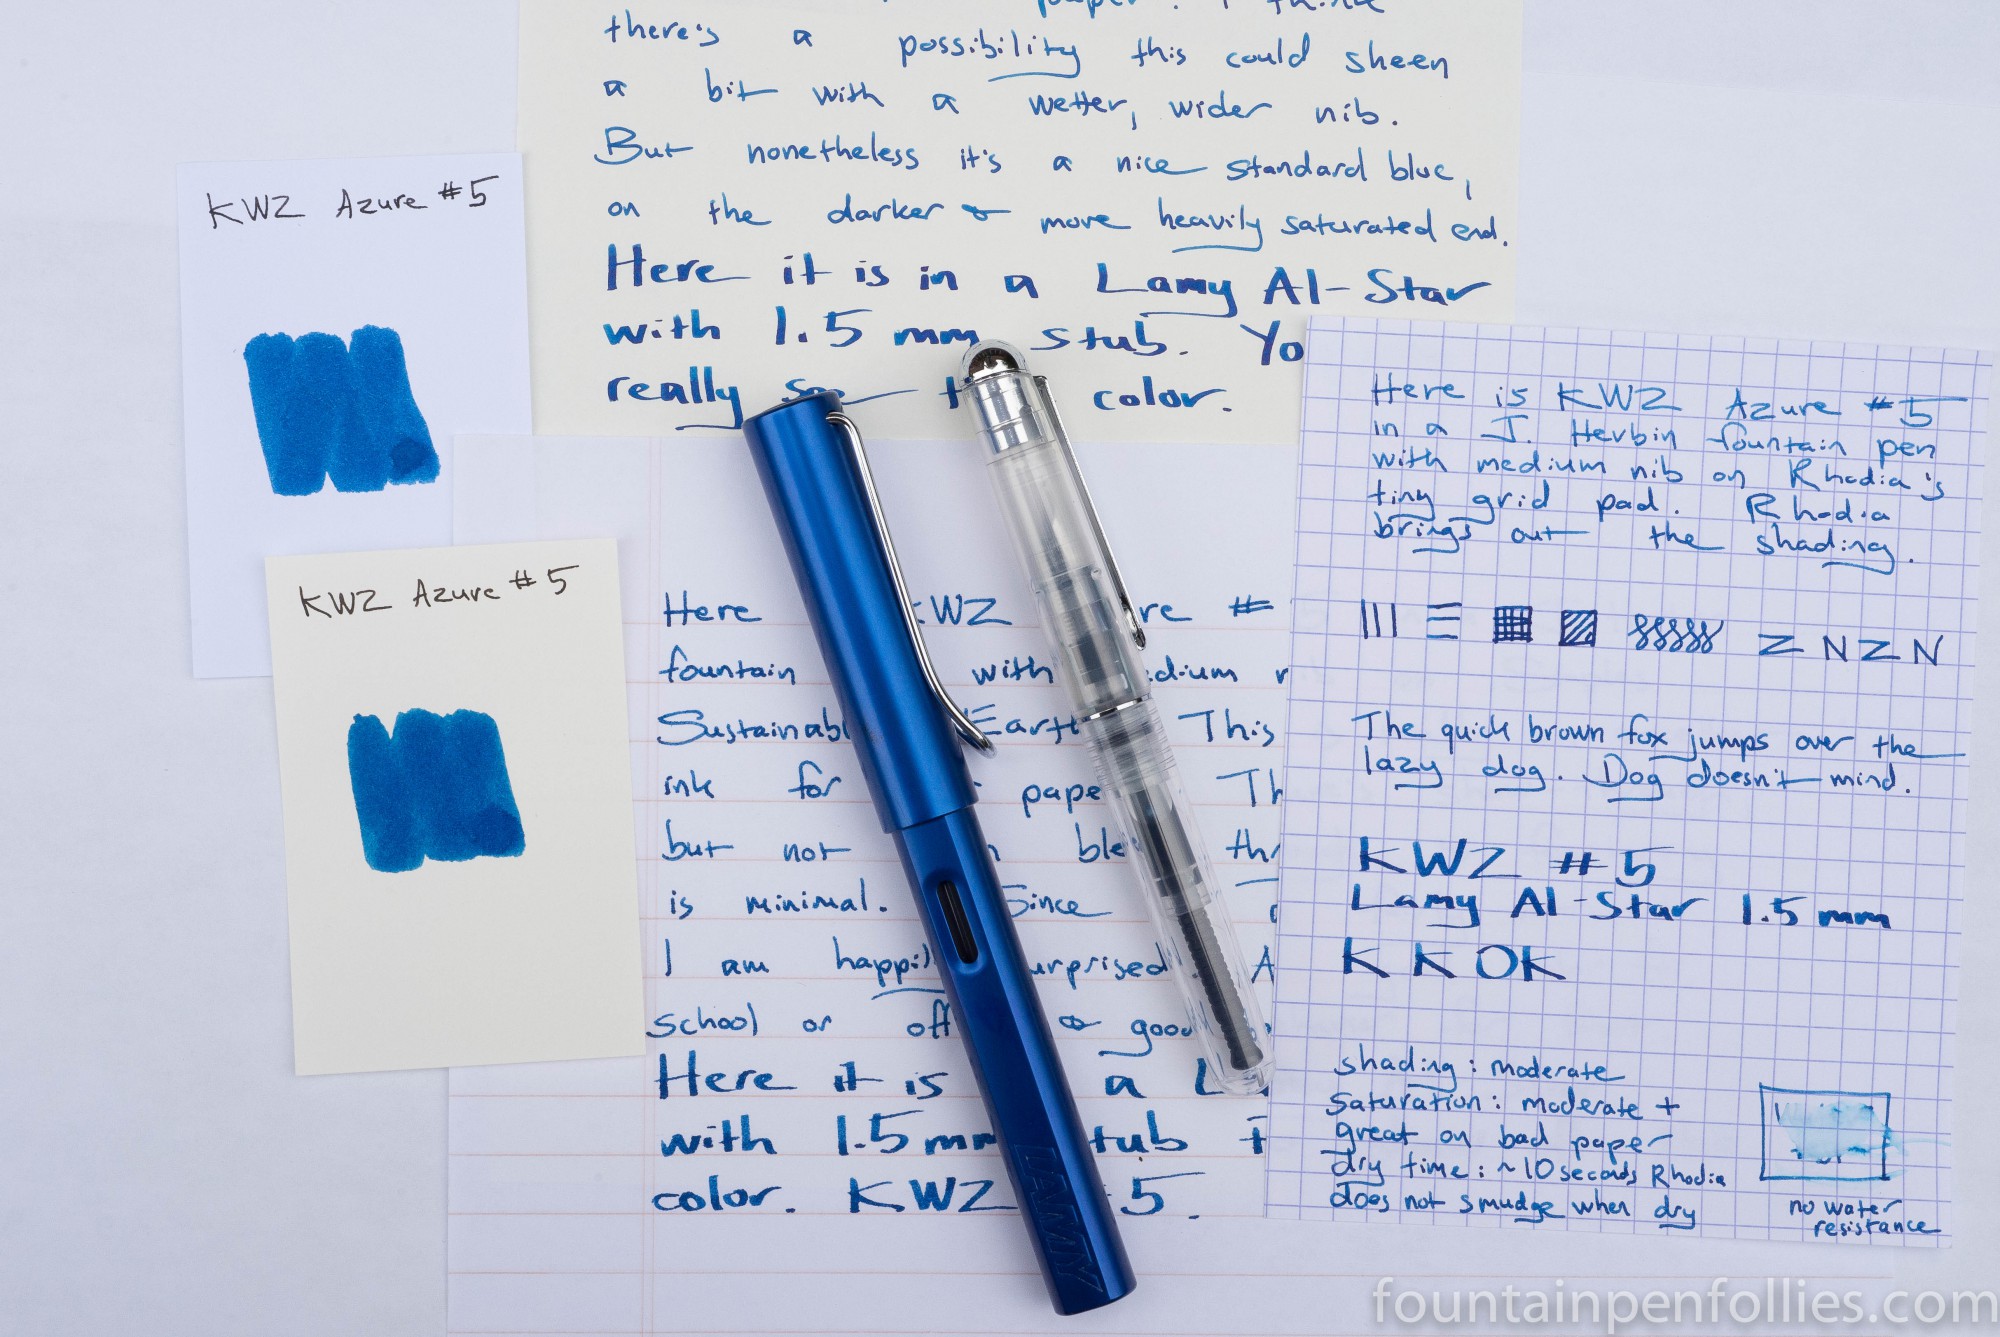 paper. I think
there's a possibility this could sheen
a bit with a wetter, wider nib.
But nonetheless it's a nice standard blue,
on the darker & more heavily saturated end.
Here it is in a Lamy Al-Star
with 1.5 mm stub. Yo
really color.
KWZ Azure #5
KWZ Azure #5
Here KWZ #
fountain with
This
ink for
but not
is minimal. Since
I am
school or good
Here it is a
with 1.5 mm
color. KWZ 5.
LAMY
Here is KWZ Azure #5
in a J. Herbin fountain pen
with medium nib on Rhodia's
tiny grid pad. Rhodia
brings out the shading.
Z N Z N
The quick brown fox jumps over the
lazy dog. Dog doesn't mind.
KWZ #5
Lamy Al-Star 1.5 mm
K K OK
shading: moderate
saturation: moderate +
great on bad paper
dry time: ~10 seconds Rhodia
does not smudge when dry
no water
resistance
fountainpenfollies.com